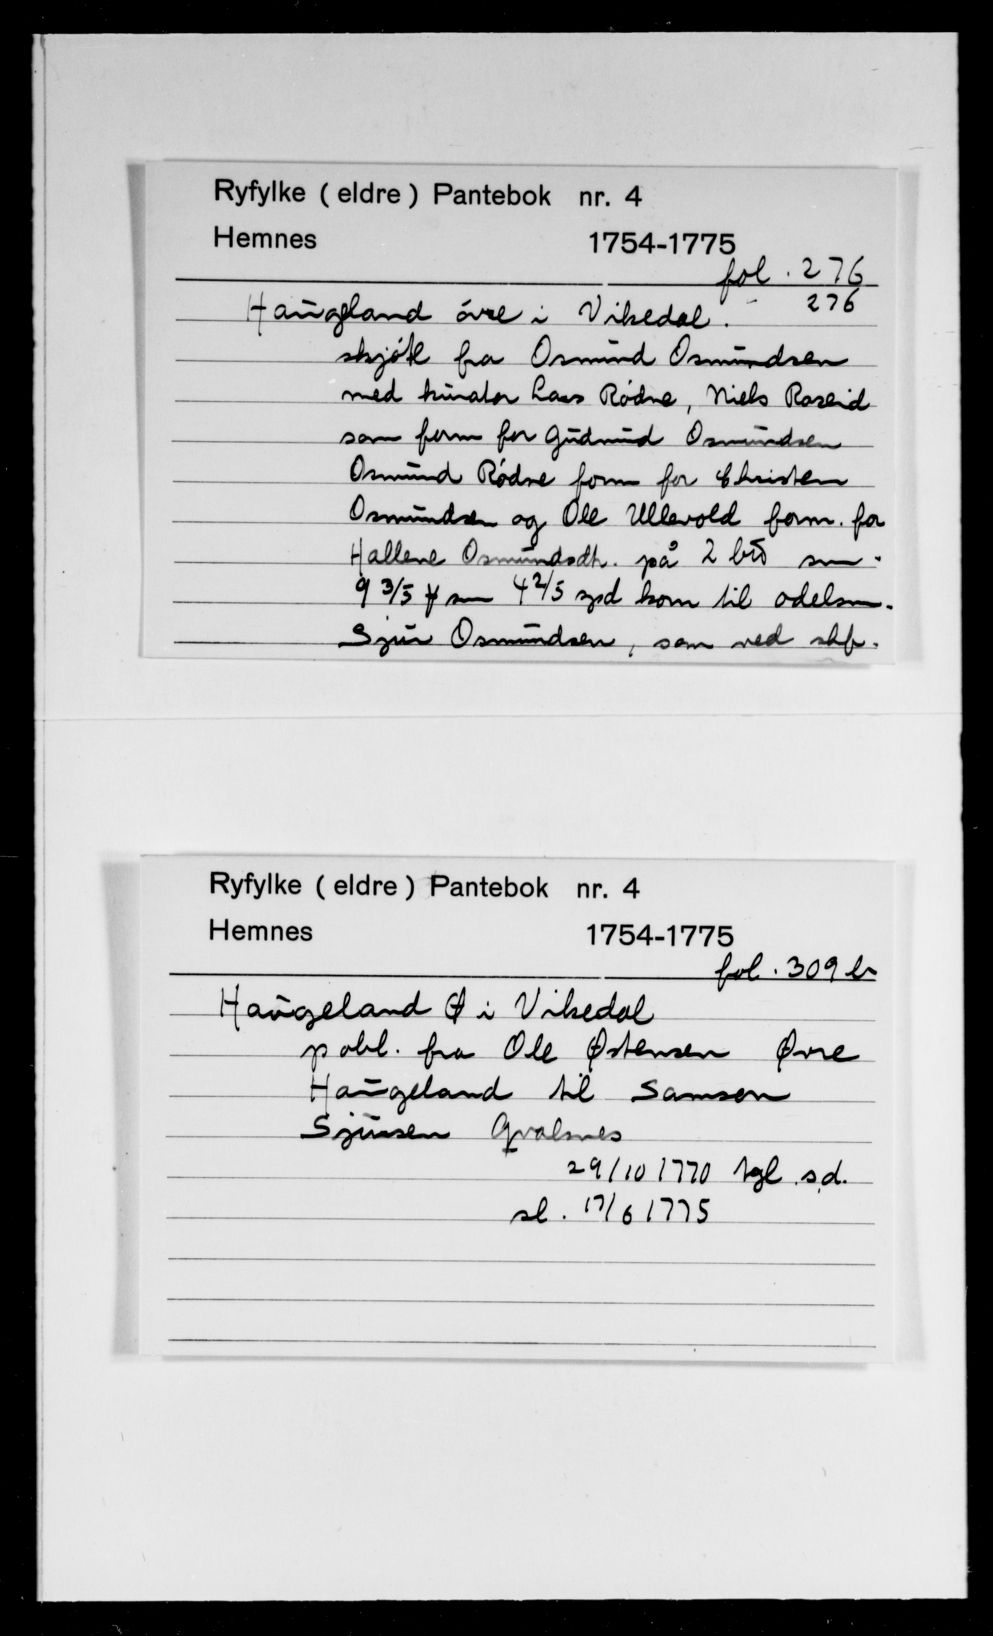 Ryfylke (eldre) Pantebok nr. 4
Hemnes 1754-1775
fol. 276
Haugeland óvre i Vikedal. 276
skjót fra Osmund Osmundsen
med kurator Lars Ródne, Niels Roseid
som form for Gudmund Osmundsen
Osmund Ródne form for Christen
Osmundsen og Ole Ullevold form. for
Osmundsdtr. på 2
9 3/5 4 2/5 spd kom til odelsm.
Sjur Osmundsen, som ved skf.
Ryfylke (eldre) Pantebok nr. 4
Hemnes 1754-1775
fol. 309 b
Haugeland Ø i Vikedal
p obl. fra Ole Østensen Øvre
Haugeland til Samson
Sjursen Qvalnes
29/10 1770 tgl s.d.
sl. 17/6 1775